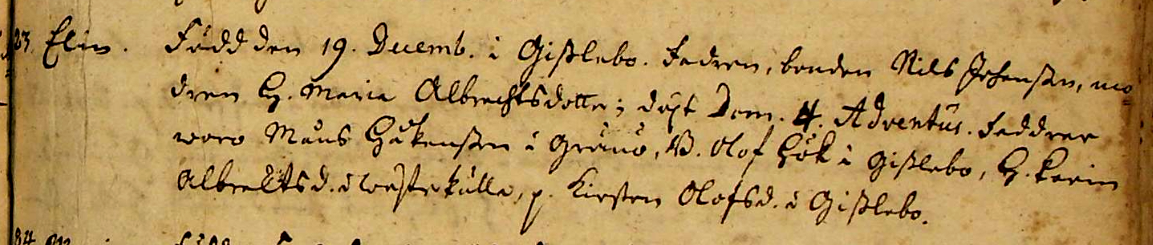 23. Elin. Född den 19. Decemb. i Gißlebo. Fadren, bonden Nils Johanßon, mo=
dren H. Maria Albrechtsdotter; döpt Dom. 4. Adventûs. Faddrar
woro Måns Håkenßon i Gränö, B. Olof Höök i Gißlebo, H. Karin
Albrectsd. i Westrekulla, p. Kirsten Olofsd. i Gißlebo.
84